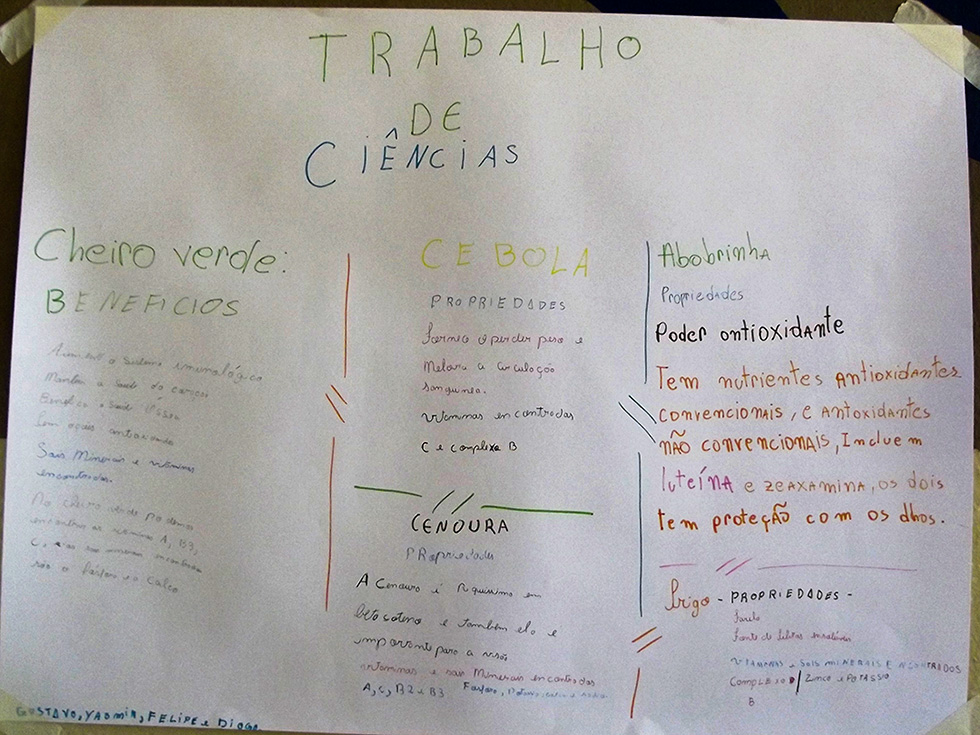 TRABALHO
DE
CIÊNCIAS
Cheiro verde:
BENEFICIOS
Aumenta o sistema imunológico
Mantem a saude do coração
Benefica a saude óssea
Tem ação antioxidante
Sais Minerais e vitaminas
encontradas.
No cheiro verde podemos
encontrar as vitaminas A, B3,
C, e os sais minerais encontrados
são o fosforo e o calcio
CEBOLA
PROPRIEDADES
perder peso e
Melora a circulação
sanguinea.
vitaminas encontrodas
C e complexo B
CENOURA
PROpriedades
A Cenoura é riquissima em
beta coteno e também ela e
importante para a visão
vitaminas e sais Minerais encontrados
A, C, B2 e B3 Fosforo, Potassio
Abobrinha
Propriedades
Poder ontioxidante
Tem nutrientes Antioxidantes
convencionais, e Antoxidantes
NÃO convencionais, Incluem
luteína e zeaxamina, os dois
tem proteção com os olhos.
trigo - PROPRIEDADES -
Farelo
Fonte de fibras insolúveis
VITAMINAS e Sais MINERAIS ENCONTRADOS
Complexo B / Zinco e POTASSIO
B
GUSTAVO, YASMIN, FELIPE e DIOGO